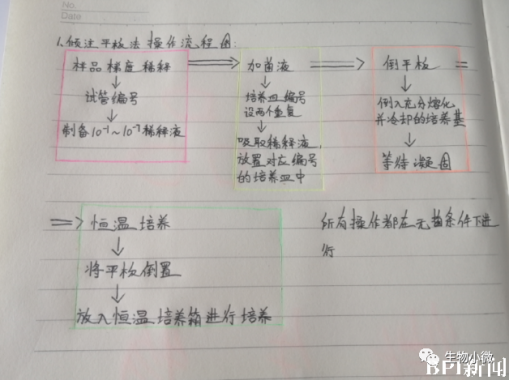 No.
Date
1.倾注平板法操作流程图:
样品梯度稀释
试管编号
制备10⁻¹~10⁻⁷稀释液
加菌液
培养皿编号
设两个重复
吸取稀释液,
放置对应编号
的培养皿中
倒平板
倒入充分熔化
并冷却的培养基
等待凝固
恒温培养
将平板倒置
放入恒温培养箱进行培养
所有操作都在无菌条件下进
行
生物小微
BPI新闻